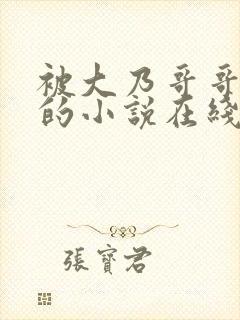 被大乃哥哥
的小說在綫
張寶君